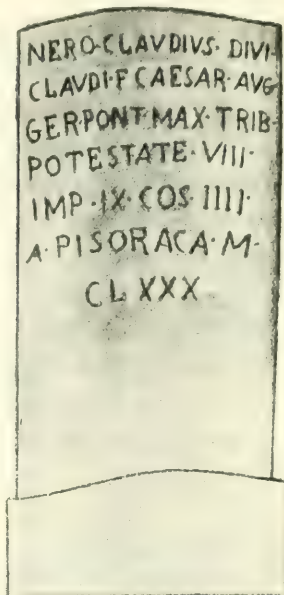 NERO·CLAVDIVS·DIVI·
CLAVDI·F·CAESAR·AVG·
GER·PONT·MAX·TRIB·
POTESTATE·VIII·
IMP·IX·COS·IIII·
A·PISORACA·M·
CLXXX